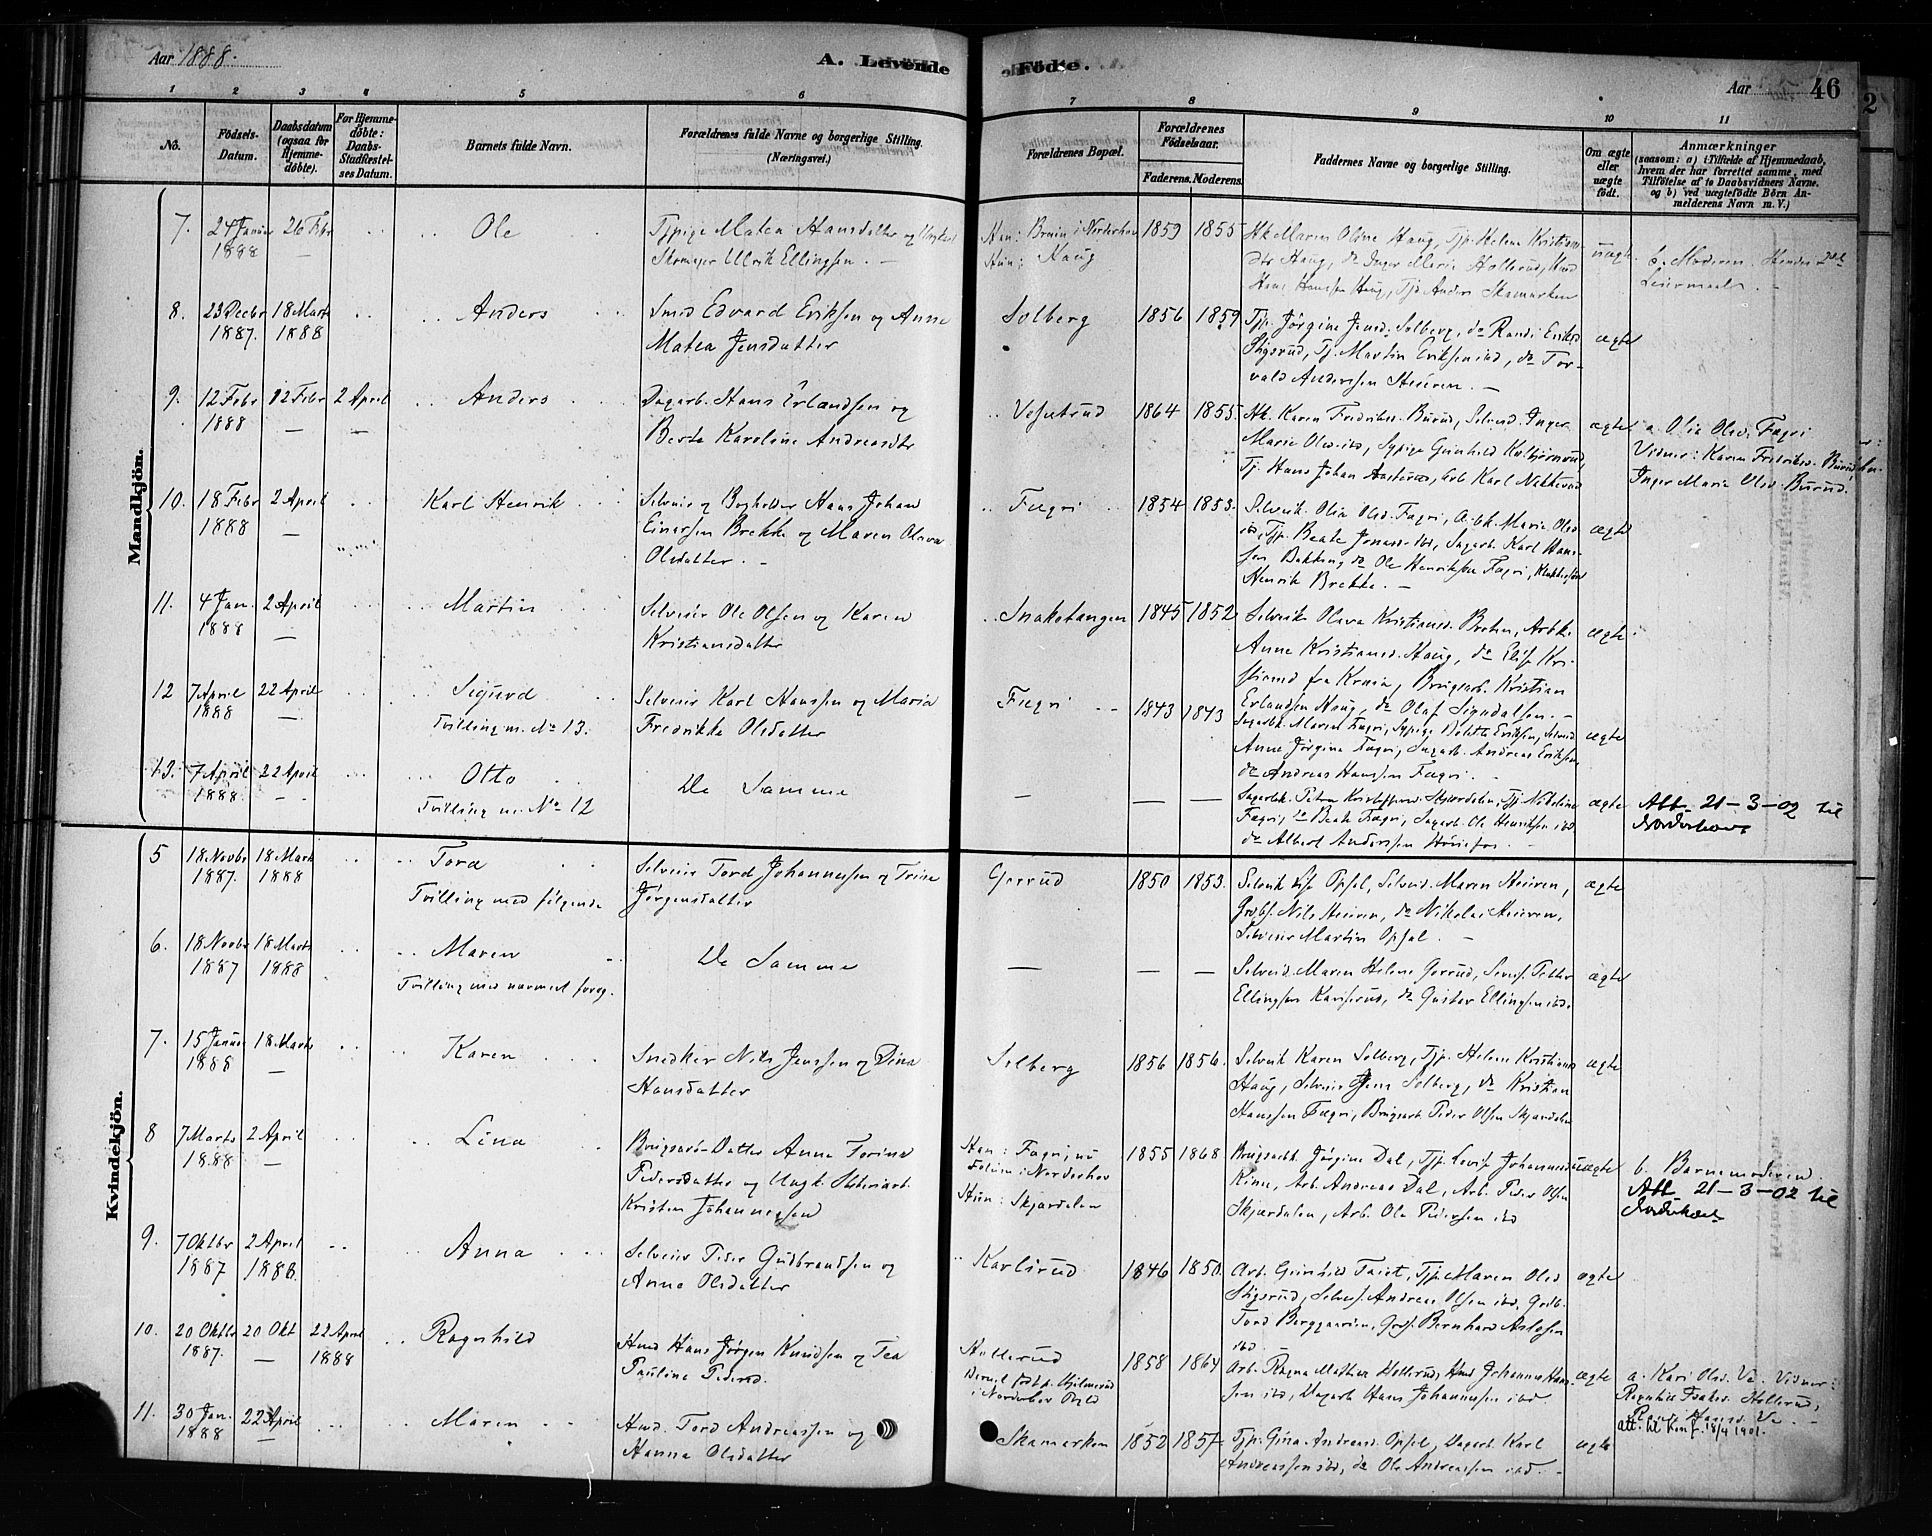 Aar 1888.
A. Levende
Födte.
Aar
46
2
1 2 3 4 5 6 7 8 9 10 11
No.
Födsels-
Datum.
Daabsdatum
(ogsaa for
Hjemme-
döbte).
For Hjemme-
döbte:
Daabs-
Stadfæstel-
ses Datum.
Barnets fulde Navn.
Forældrenes fulde Navne og borgerlige Stilling.
(Næringsvei.)
Forældrenes Bopæl.
Forældrenes
Födselsaar.
Faderens. Moderens.
Faddernes Navne og borgerlige Stilling.
Om ægte
eller
uægte
födt.
Anmærkninger
(saasom: a) i Tilfælde af Hjemmedaab,
hvem der har forrettet samme, med
Tilföielse af to Daabsvidners Navne.
og b) ved uægtefödte Börn An-
melderens Navn m. V.)
Mandkjön.
7. 24 Januar 26 Febr
1888
Ole
Tjpige Matea Hansdatter og Ungkarl
Skomager Ulrik Ellingsen.
Han: Bruin i Norderhov
Hun: Haug
1859 1855
Hk Maren Oline Haug, Tjp. Helene Kristians-
dtr Haug, do Inger Marie Hollerud,
Hans Hanssen Haug, Tjd. Anders Skamarken
uægte
b. Moderen. Hendes 2det
Leiermaal.
8. 23 Decbr 18 Marts
1887. 1888
Anders
Smed Edvard Eriksen og Anne
Matea Jensdatter
Solberg
1856 1859
Tjp. Jørgine Jensd. Solberg, do Randi Eriksd
Stigsrud, Tj. Martin Eriksen ibd, do Tor-
vald Anderssen Heieren.
ægte
9. 12 Febr 12 Febr 2 April
1888
Anders
Dagarb. Hans Erlandsen og
Berte Karoline Andreasdtr
Vesetrud
1864 1855
Hk. Karen Fredriks. Burud, Selveid. Inger
Marie Olsd. ibd, Sypige Gunhild Kolbjørnsrud,
Tj. Hans Johan Aasterud, Arb. Karl Nakkerud
ægte
a. Olia Olsd. Fægri
Vidner: Karen Fredriksd. Burud,
Inger Maria Olsd. Burud.
10. 18 Febr 2 April
1888
Karl Henrik
Selveier og Bogholder Hans Johan
Einarsen Brekke og Maren Oleva
Olsdatter.
Fægri
1854 1853.
Selveik. Olia Olsd. Fægri, Arbk. Maria Olsd
ibd, Tjp. Beate Jonasd. ibd, Sagarb. Karl Hans-
sen Bakking, do Ole Henriksen Fægri,
Henrik Brekke.
ægte
11. 4 Jan. 2 April
1888
Martin
Selveier Ole Olsen og Karen
Kristiansdatter
Snakotangen
1845 1852
Selveik. Olava Kristiansd. Brehn, Arbk.
Anne Kristiansd. Haug, do Elise Kri-
stiansd fra Krosia, Brugsarb. Kristian
Erlandsen Haug, do Olaf Sigudalsen.
ægte
12 7 April 22 April
1888
Sigurd
Tvilling m. No 13.
Selveier Karl Hanssen og Maria
Fredrikke Olsdatter
Fægri
1843 1843
Sagarbk. Maren Fægri, Sypige Bolette Eriksen, Selveid
Anne Jørgine Fægri, Sagarb. Andreas Eriksen,
do Andreas Hanssen Fægri.
ægte
13. 7 April 22 April
1888.
Otto
Tvilling m. No 12
De Samme
— — —
Sagarbk. Petra Kristoffersd. Skjærdalen, Tj. Nikoline
Fægri, do Beate Fægri, Sagarb. Ole Henriksen ibd,
do Albert Anderssen Hønefos.
ægte
Att. 21-3-02 til
Norderhov
Kvindekjön.
5 18 Novbr 18 Marts
1887. 1888
Tora
Tvilling med følgende
Selveier Tord Johannessen og Trine
Jørgensdatter
Gorrud
1850 1853.
Selveik Lise Opsal, Selveid. Maren Heieren,
Grdbf. Nils Heieren, do Nikolai Heieren,
Selveier Martin Opsal.
ægte
6. 18 Novbr 18 Marts
1887 1888
Maren
Tvilling med nærmest foreg.
De Samme
— — —
Selveid. Maren Helene Gorrud, Petter
Ellingsen Karlsrud, do Gustav Ellingsen ibd.
ægte
7. 15 Januar 18 Marts
1888
Karen
Snedker Nils Jenssen og Dina
Hansdatter
Solberg
1856 1856.
Selveik Karen Solberg, Tjp. Helene Kristiansd
Haug, Selveier Jens Solberg, do Kristian
Hanssen Fægri, Brugsarb. Peder Olsen Skjærdalen
ægte
8 7 Marts 2 April
1888
Lina
Brugsarb-Datter Anne Torine
Pedersdatter og Ungk.
Kristen Johannessen
Han: Fægri, nu
Follum i Norderhov
Hun: Skjærdalen
1855 1868
Brugsarbk. Jørgine Dal, Tjp. Lovise Johannesd
Rine, Arb. Andreas Dal, Arb. Peder Olsen
Skjærdalen, Arb. Ole Pedersen ibd
uægte
b. Barnemoderen
Att. 21-3-02 til
Norderhov
9. 7 Oktbr 2 April
1887 1888.
Anna
Selveier Peder Gudbrandsen og
Anne Olsdatter
Karlsrud
1846 1850.
Arb. Gunhild Taiet, Tjp. Maren Olsd
Stigsrud, Selves. Andreas Olsen ibd, Grdb.
Tord Berggaarden, Grds. Bernhard Aslesen
ibd.
ægte
10. 20 Oktbr 20 Okt 22 April
1887. 1888
Ragnhild
Hmd Hans Jørgen Knudsen og Tea
Pauline Pedersd.
Hollerud
i Norderhov
1858 1864
Arb. Ragna Mathea Hollerud, Hmd Johannes Hans-
sen ibd, Dagarb Hans Johannessen ibd
ægte
a. Kari Olsd. Va. Vidner:
Ragnhild Hollerud,
Hansd. Va.
att. til Konf. 18/4 1901.
11. 30 Jan. 22 April
1888
Maren
Hmd. Tord Andreassen og
Hanna Olsdatter
Skamarken
1852 1857
Tjp. Gina Andreasd. Opsal, Dagarb Karl
Andreassen ibd, do Ole Andreassen ibd.
ægte